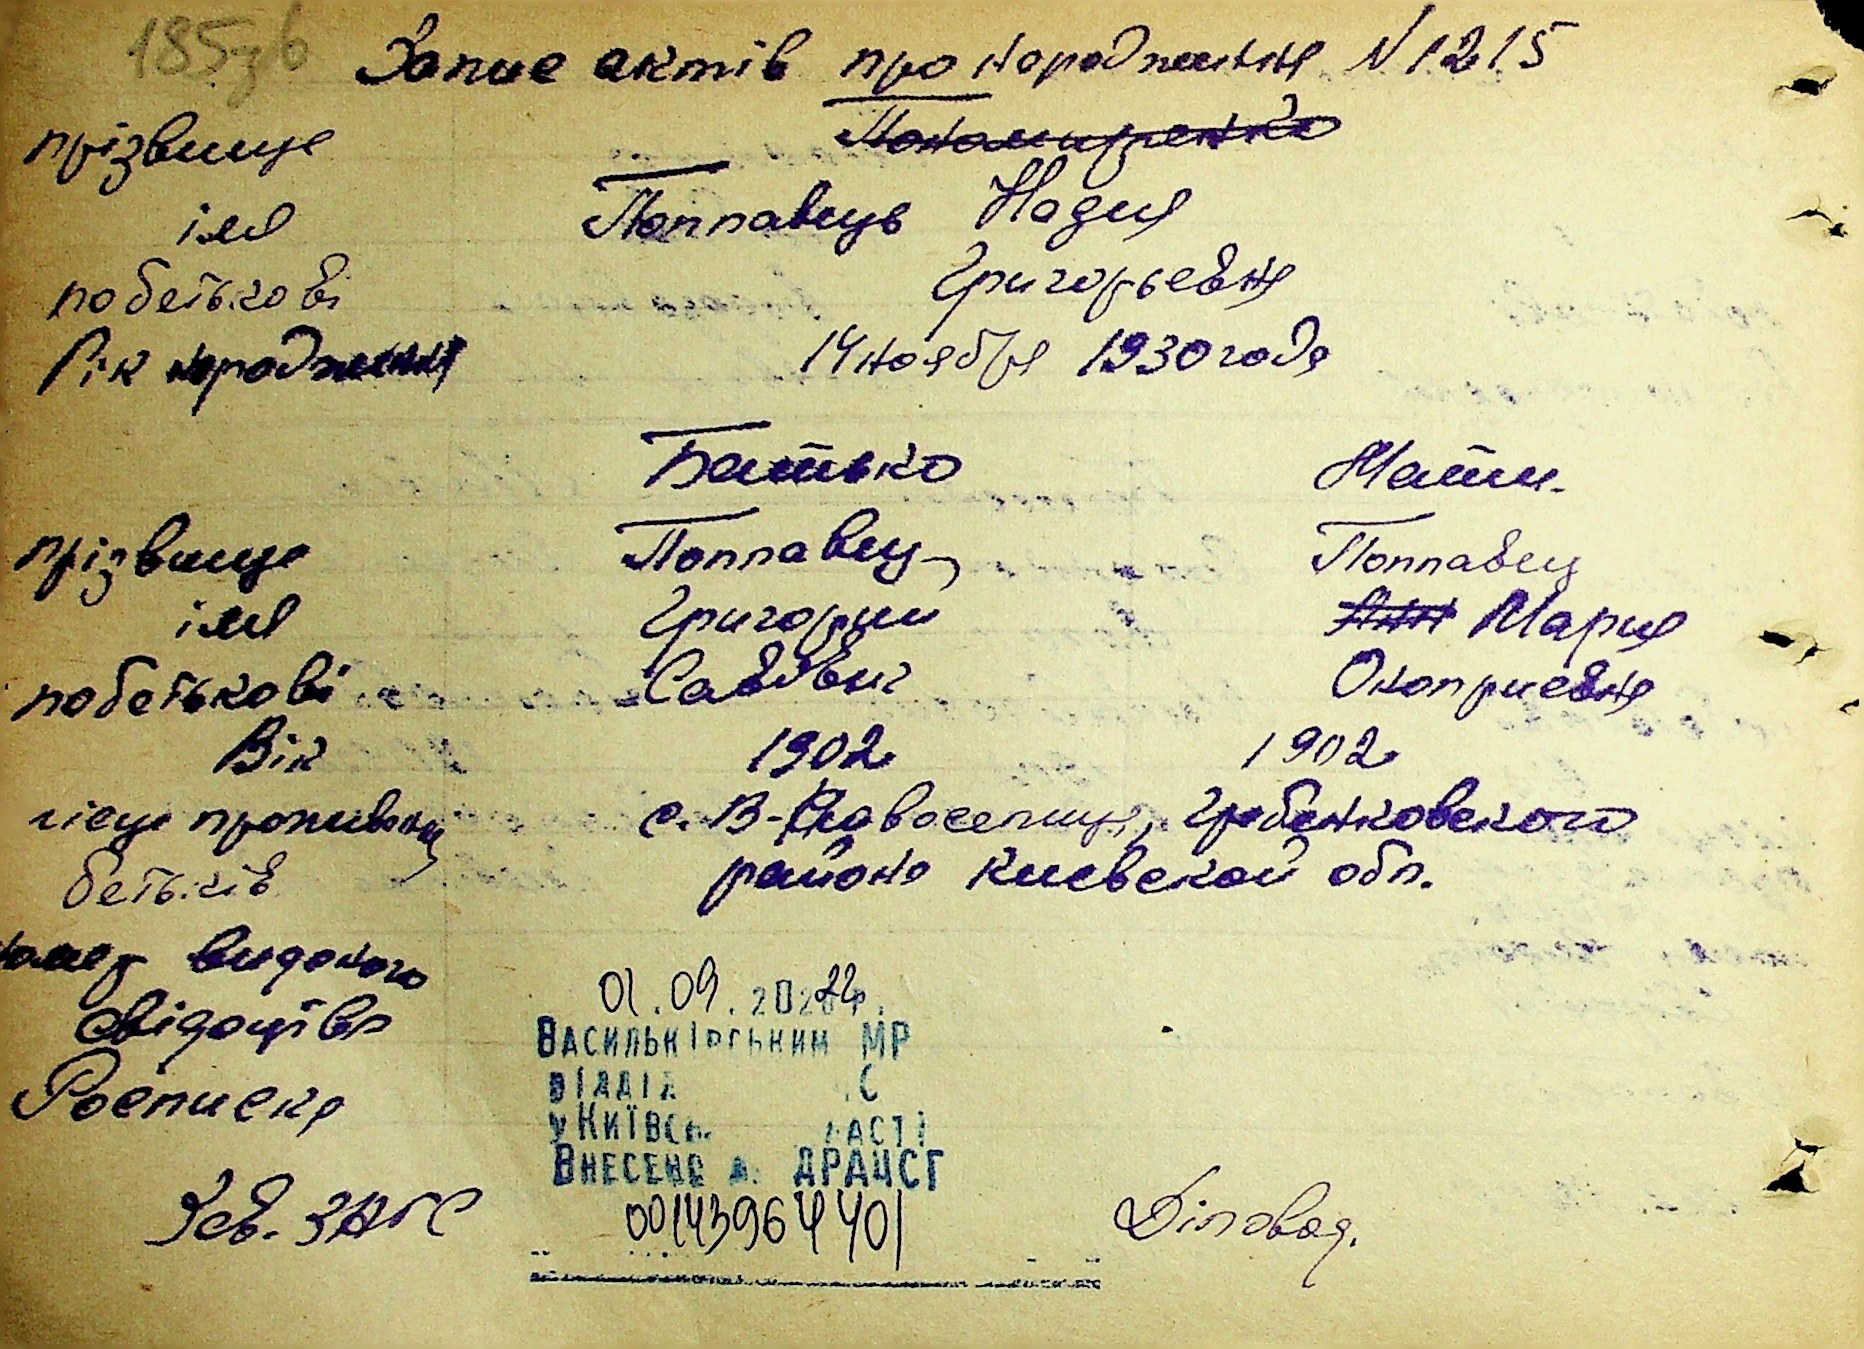 185зв
Запис актів про народження N 1215
прізвище Пономаренко
імя Поплавець Надия
по батькові Григорьевна
Рік народження 14 ноября 1930 года
Батько Мати
прізвище Поплавец Поплавец
імя Григорий Анн Мария
по батькові Савович Оноприевна
Вік 1902 1902
місце проживання с. В-Новоселица, Гребенковского
батьків района Киевской обл.
номер виданого
свідоцтва
Росписка
01.09.2022
Васильківським МР
відділ С
у Київс ласті
Внесено д ДРАЦСГ
Зав. ЗАГС 00143964401 Діловод.